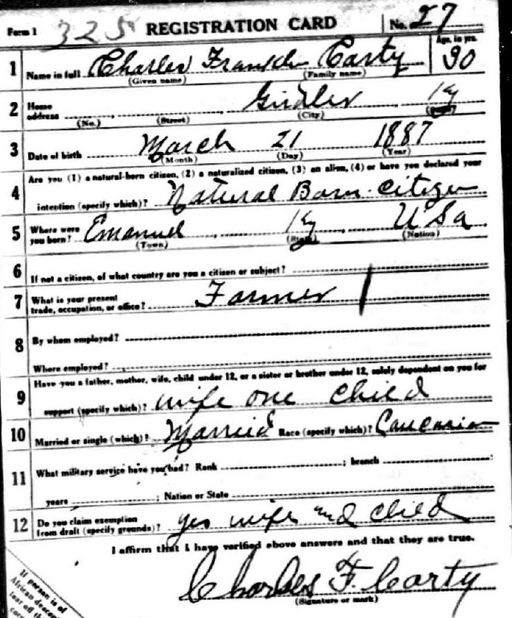 Form 1 325 REGISTRATION CARD No. 27
1 Name in full Charles Franklin Carty Age, in yrs. 30
(Given name) (Family name)
2 Home address Girdler Ky
(No.) (Street) (City) (State)
3 Date of birth March 21 1887
(Month) (Day) (Year)
4 Are you (1) a natural-born citizen, (2) a naturalized citizen, (3) an alien, (4) or have you declared your
intention (specify which)? Natural Born citizen
5 Where were you born? Emanuel Ky USa
(Town) (State) (Nation)
6 If not a citizen, of what country are you a citizen or subject?
7 What is your present trade, occupation, or office? Farmer
8 By whom employed?
Where employed?
9 Have you a father, mother, wife, child under 12, or a sister or brother under 12, solely dependent on you for
support (specify which)? wife one child
10 Married or single (which)? Married Race (specify which)? Caucasian
11 What military service have you had? Rank ; branch
years ; Nation or State
12 Do you claim exemption from draft (specify grounds)? yes wife and child
I affirm that I have verified above answers and that they are true.
Charles F. Carty
(Signature or mark)
If person is of
African descent,
tear off this